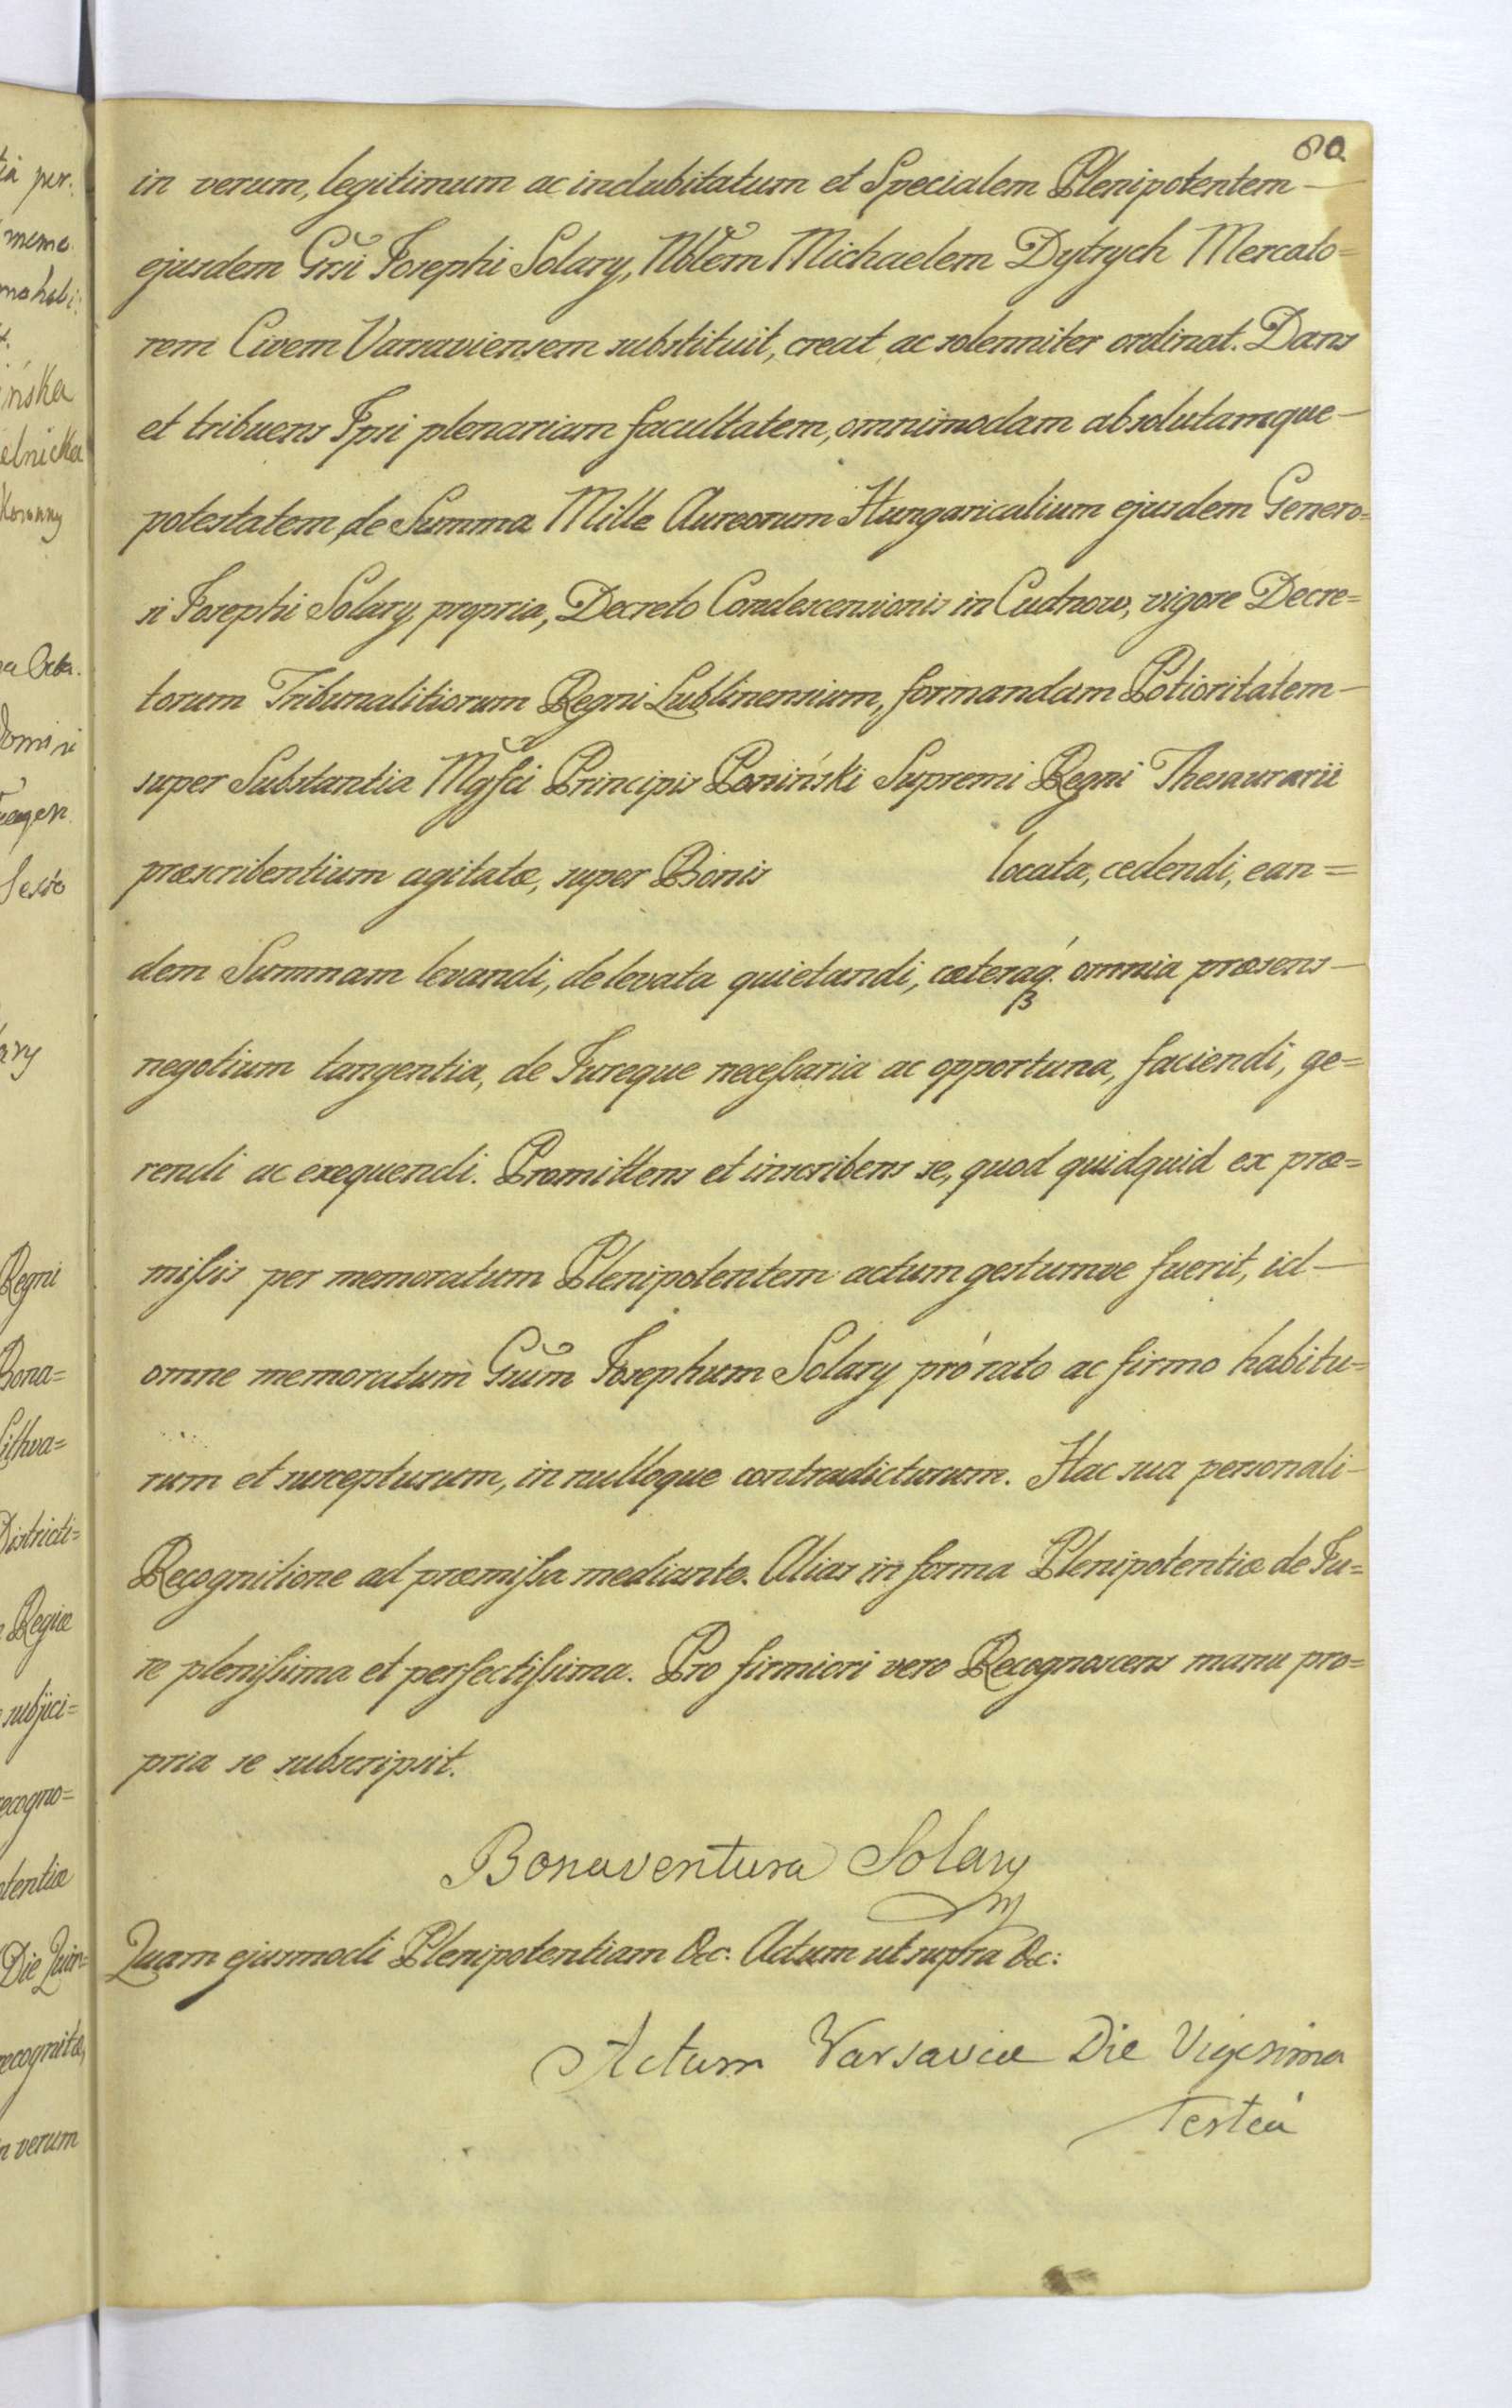 80
in verum, legitimum ac indubitatum et Specialem Plenipotentem –
ejusdem Grsi Josephi Solary, Nblem Michaelem Dytrych Mercato=
rem Civem Varsaviensem substituit, creat ac solenniter ordinat. Dans
et tribuens Ipsi plenariam facultatem, omnimodam absolutamque –
potestatem, de Summa Mille Aureorum Hungaricalium ejusdem Genero=
si Josephi Solary, propria, Decreto Condescensionis in Cudnow, vigore Decre=
torum Tribunalitiorum Regni Lublinensium, formandam Potioritatem –
super Substantia Mgfci Principis Poniński Supremi Regni Thesaurarii
præscribentium agitatæ, super Bonis locata, cedendi, ean=
dem Summam levandi, de levata quietandi, cæteraq́. omnia præsens –
negotium tangentia, de Jureque neceſsaria ac opportuna, faciendi, ge=
rendi ac exequendi. Promittens et inscribens se, quod quidquid ex præ=
miſsis per memoratum Plenipotentem actum gestumve fuerit, id –
omne memoratum Grsum Josephum Solary pró rato ac firmo habitu=
rum et suscepturum, in nulloque contradicturum. Hac sua personali –
Recognitione ad præmiſsa mediante. Alias in forma Plenipotentiæ de Ju=
re pleniſsima et perfectiſsima. Pro firmiori vero Recognoscens manu pro=
pria se subscripsit.
Bonaventura Solary
Quam ejusmodi Plenipotentiam &c. Actum ut supra &c:
Actum Varsaviæ Die Vigesima
Tertiâ